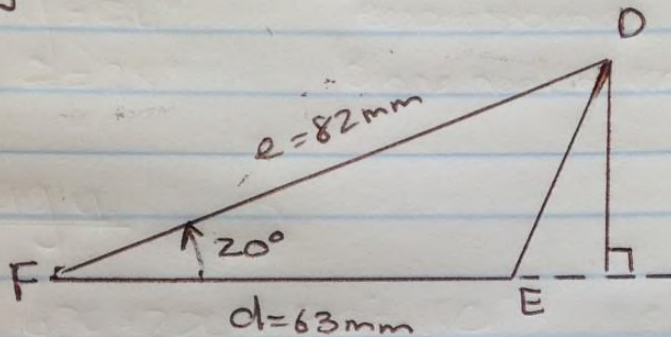 D
e=82mm
20°
F
E
d=63mm